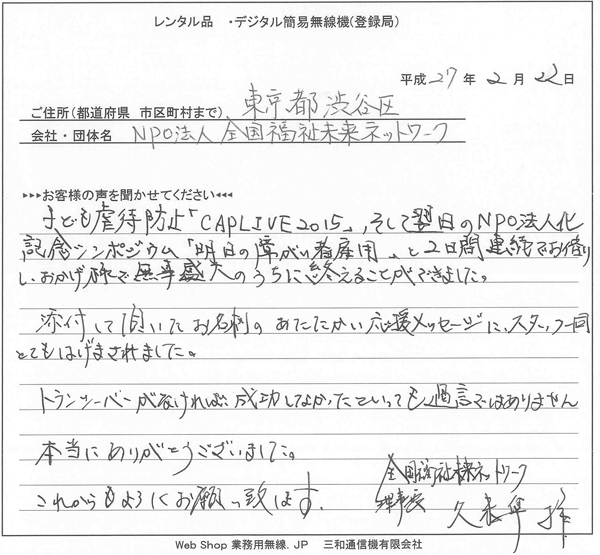 レンタル品 ・デジタル簡易無線機(登録局)
平成27年2月22日
ご住所(都道府県 市区町村まで) 東京都渋谷区
会社・団体名 NPO法人全国福祉未来ネットワーク
▸▸▸お客様の声を聞かせてください◂◂◂
子ども虐待防止「CAPLIVE2015」、そして翌日のNPO法人化
記念シンポジウム「明日の障がい者雇用」と2日間連続でお借り
し、おかげ様で無事盛大のうちに終えることができました。
添付して頂いたお名刺のあたたかい応援メッセージに、スタッフ一同
とてもはげまされました。
トランシーバーがなければ成功しなかったといっても過言ではありません
本当にありがとうございました。
これからもよろしくお願い致します.
全国福祉未来ネットワーク
理事長
Web Shop 業務用無線.JP 三和通信機有限会社